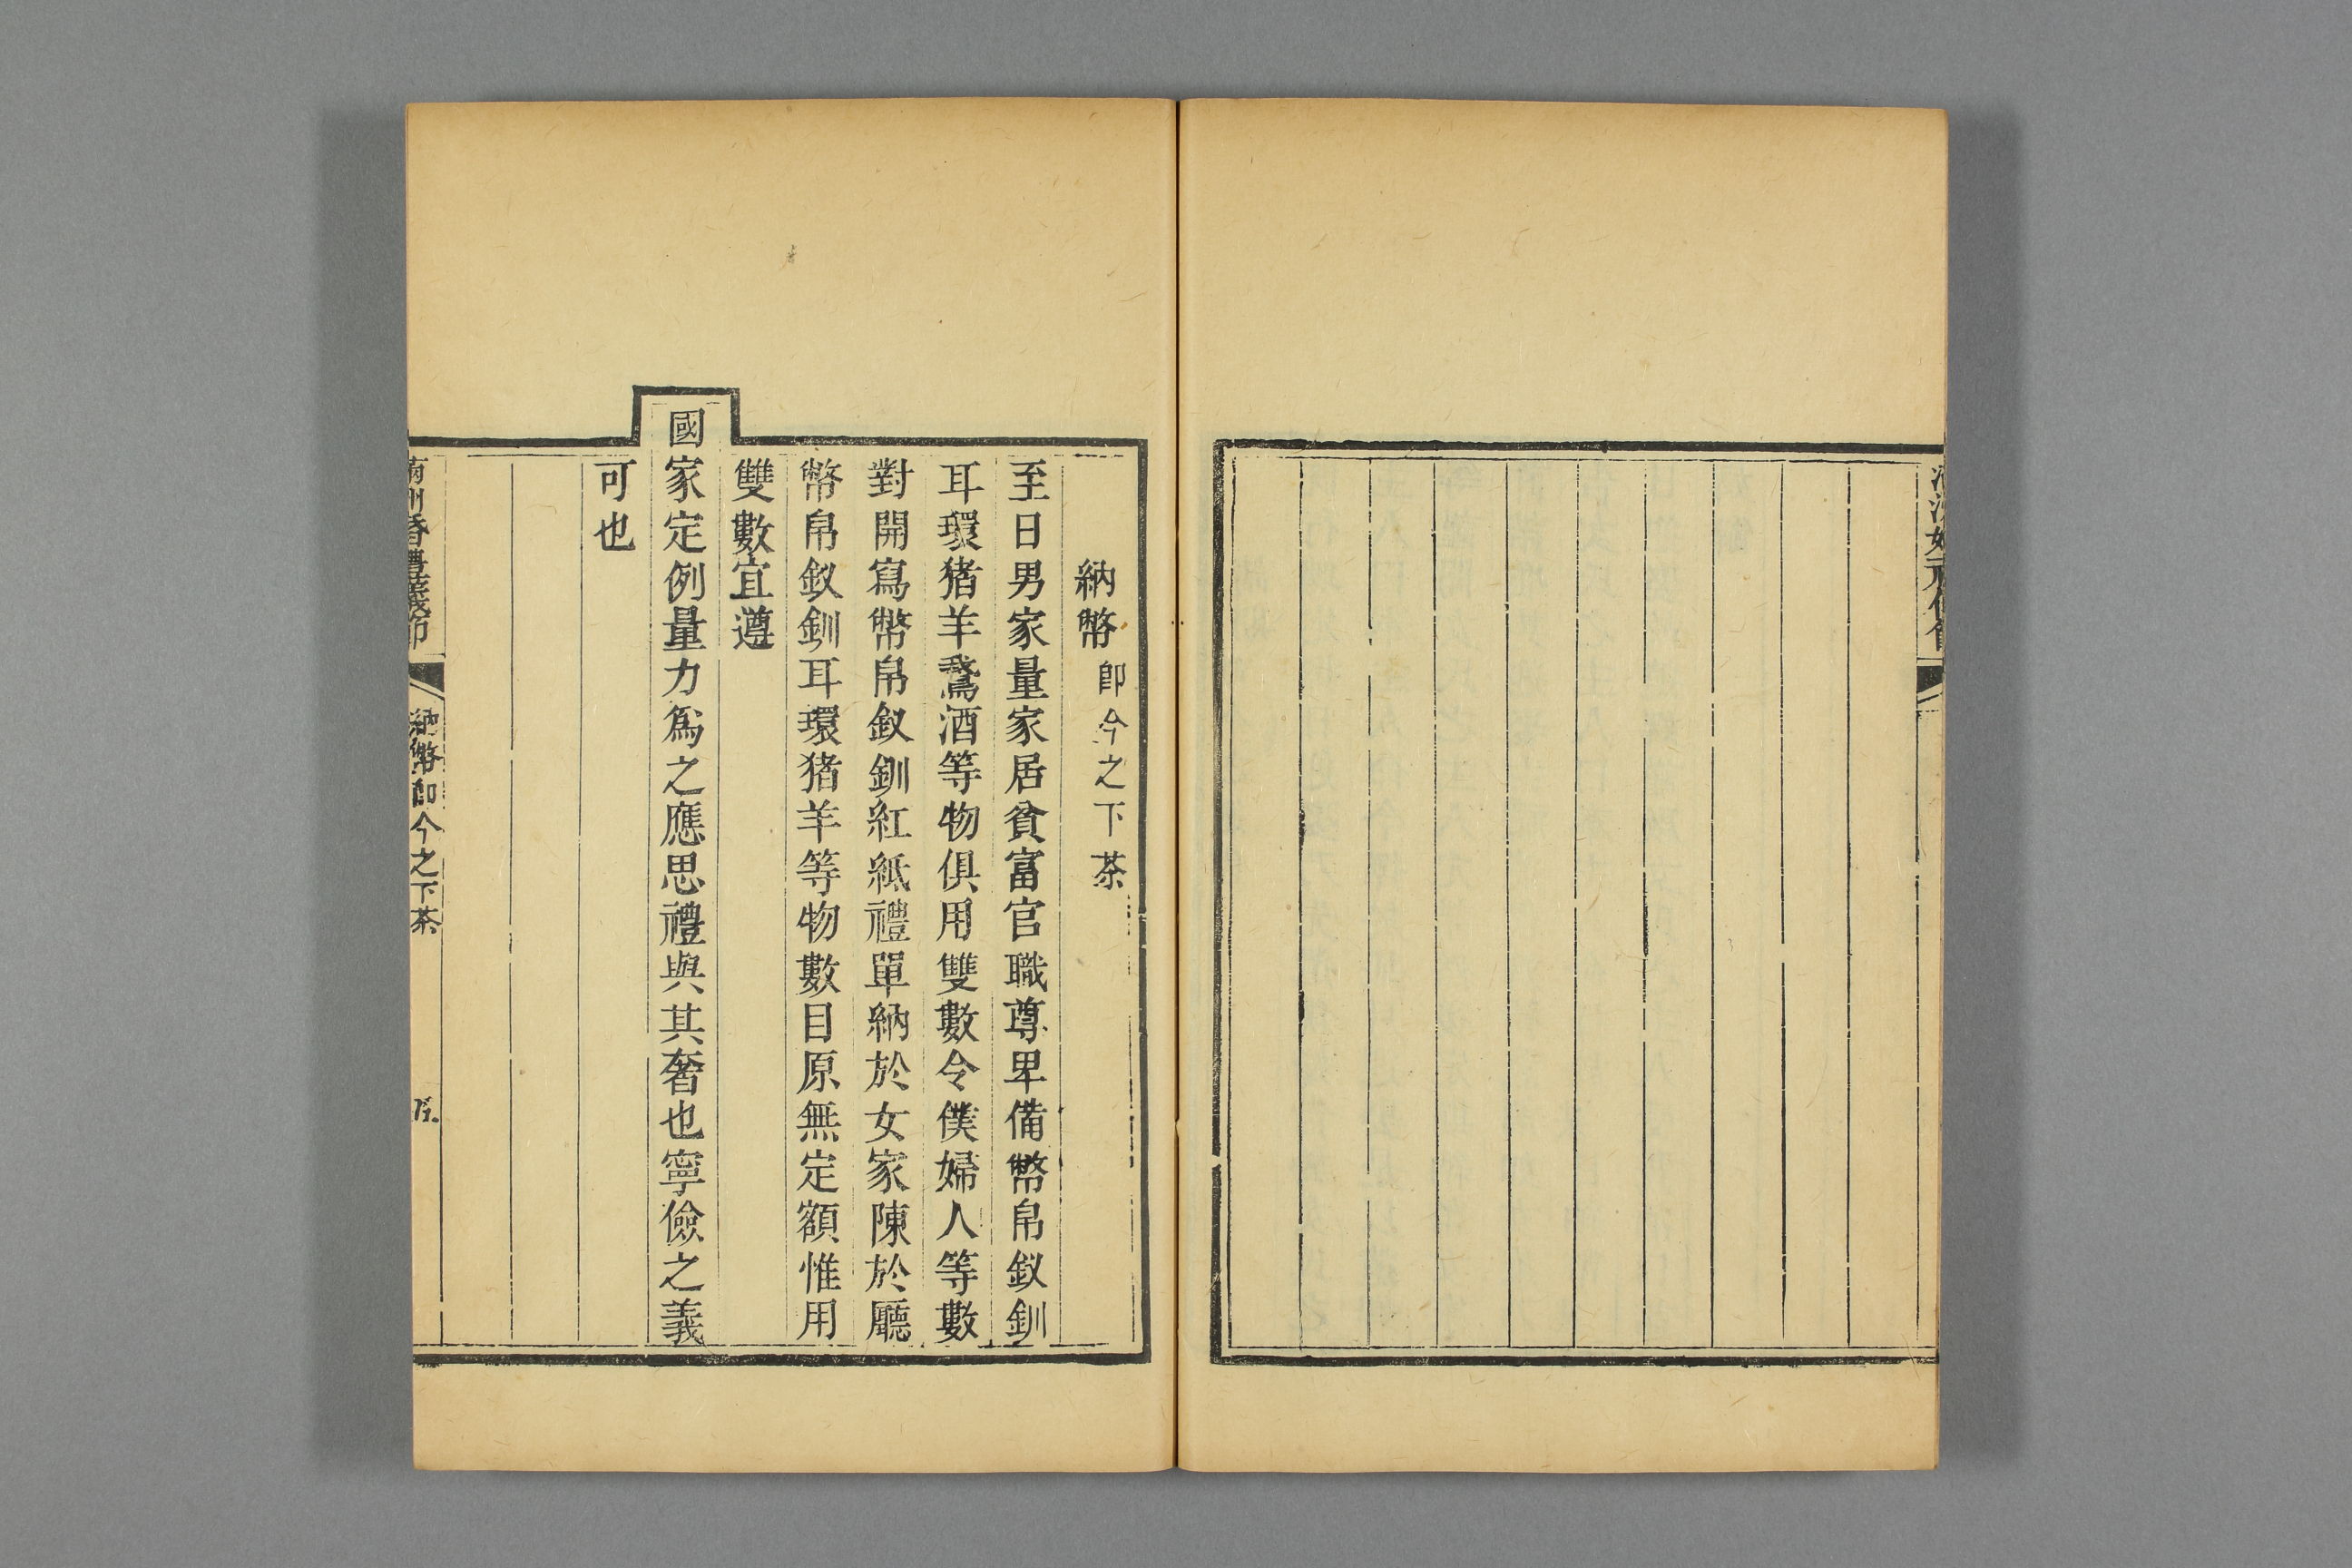 納幣 卽今之下茶
至日男家量家居貧富官職尊卑備幣帛釵釧
耳環猪羊鵞酒等物俱用雙數令僕婦人等數
對開寫幣帛釵釧紅紙禮單納於女家陳於廳
幣帛釵釧耳環猪羊等物數目原無定額惟用
雙數宜遵
國家定例量力爲之應思禮與其奢也寧儉之義
可也
納幣卽今之下茶